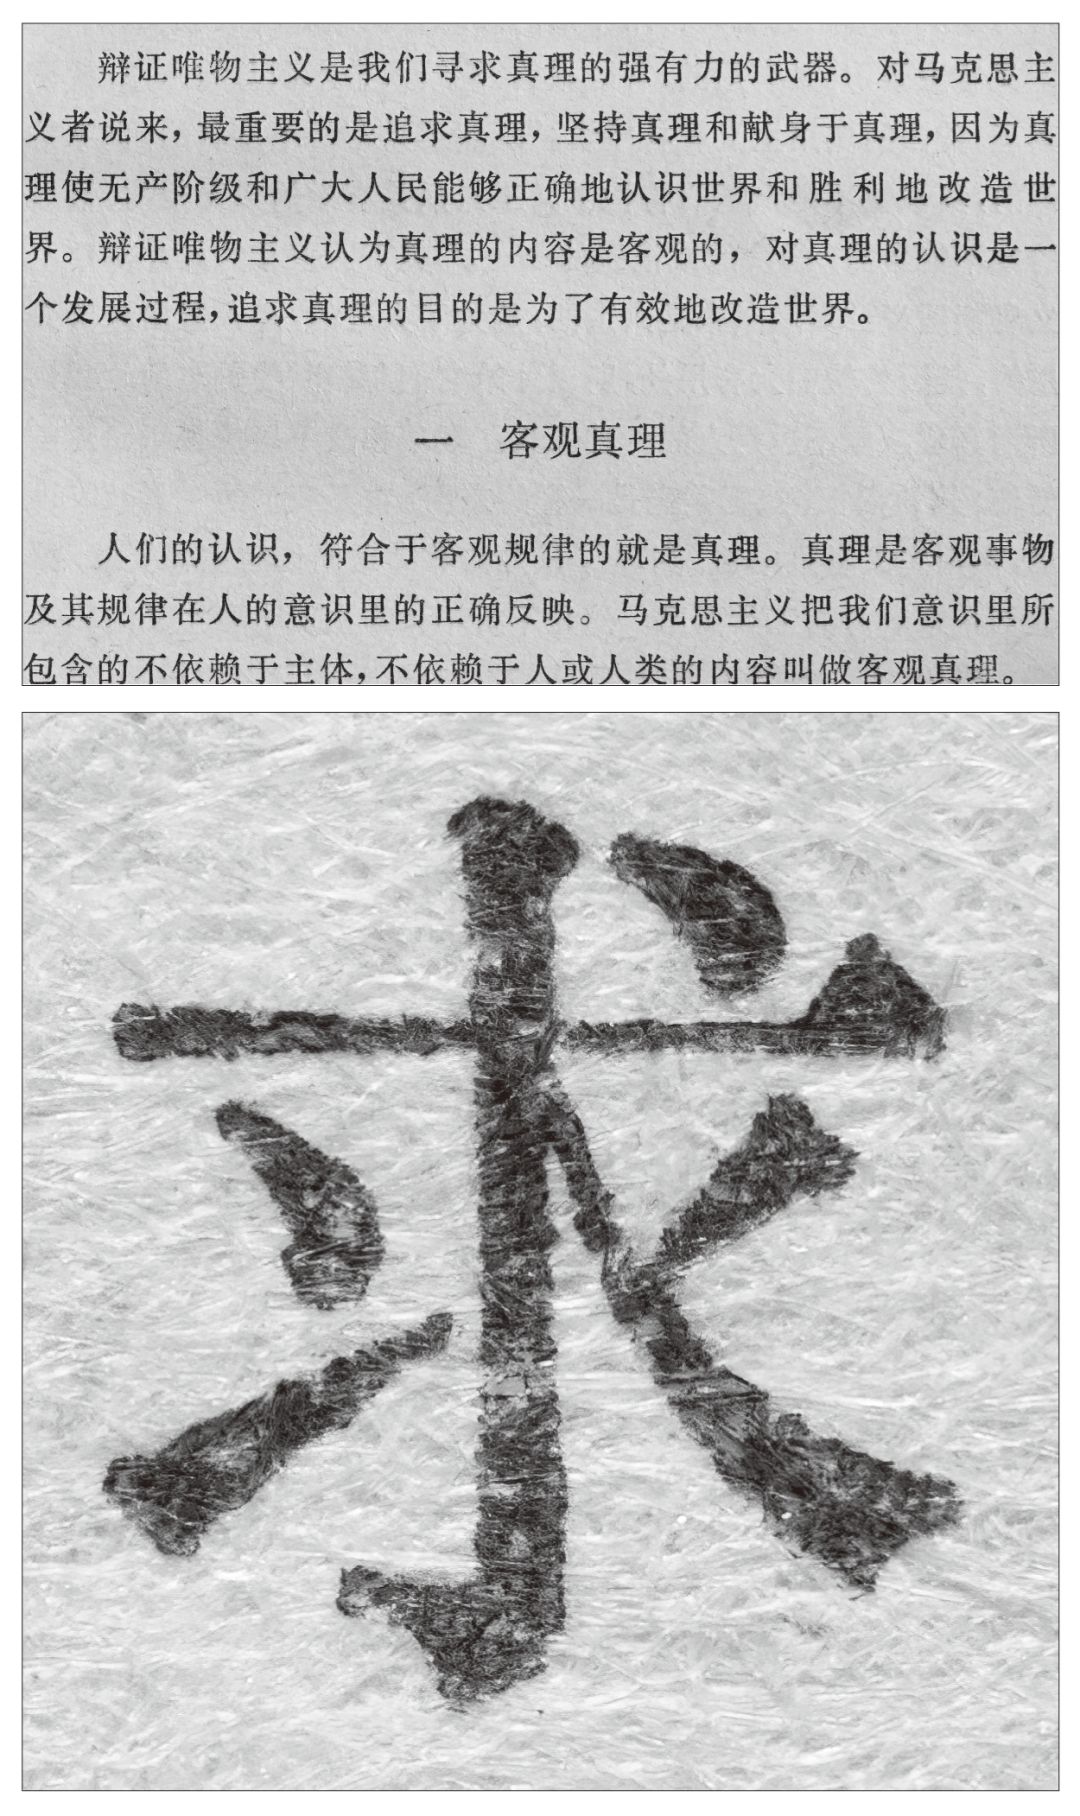 辩证唯物主义是我们寻求真理的强有力的武器。对马克思主
义者说来，最重要的是追求真理，坚持真理和献身于真理，因为真
理使无产阶级和广大人民能够正确地认识世界和胜利地改造世
界。辩证唯物主义认为真理的内容是客观的，对真理的认识是一
个发展过程，追求真理的目的是为了有效地改造世界。
一　客观真理
人们的认识，符合于客观规律的就是真理。真理是客观事物
及其规律在人的意识里的正确反映。马克思主义把我们意识里所
包含的不依赖于主体，不依赖于人或人类的内容叫做客观真理。
求